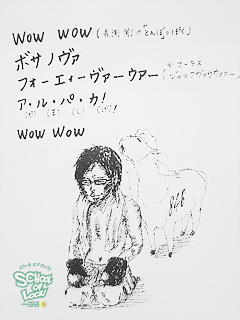 WOW WOW (長渕 剛の「とんぼ」っぽく)
ボサノヴァ
フォーエィーヴァーウァー (※コーラス
ジャックヴァウヴァー)
ア・ル・パ・カ!
(や)(ま)(し)(げ)!
WOW WOW
848
School
of
Lock!